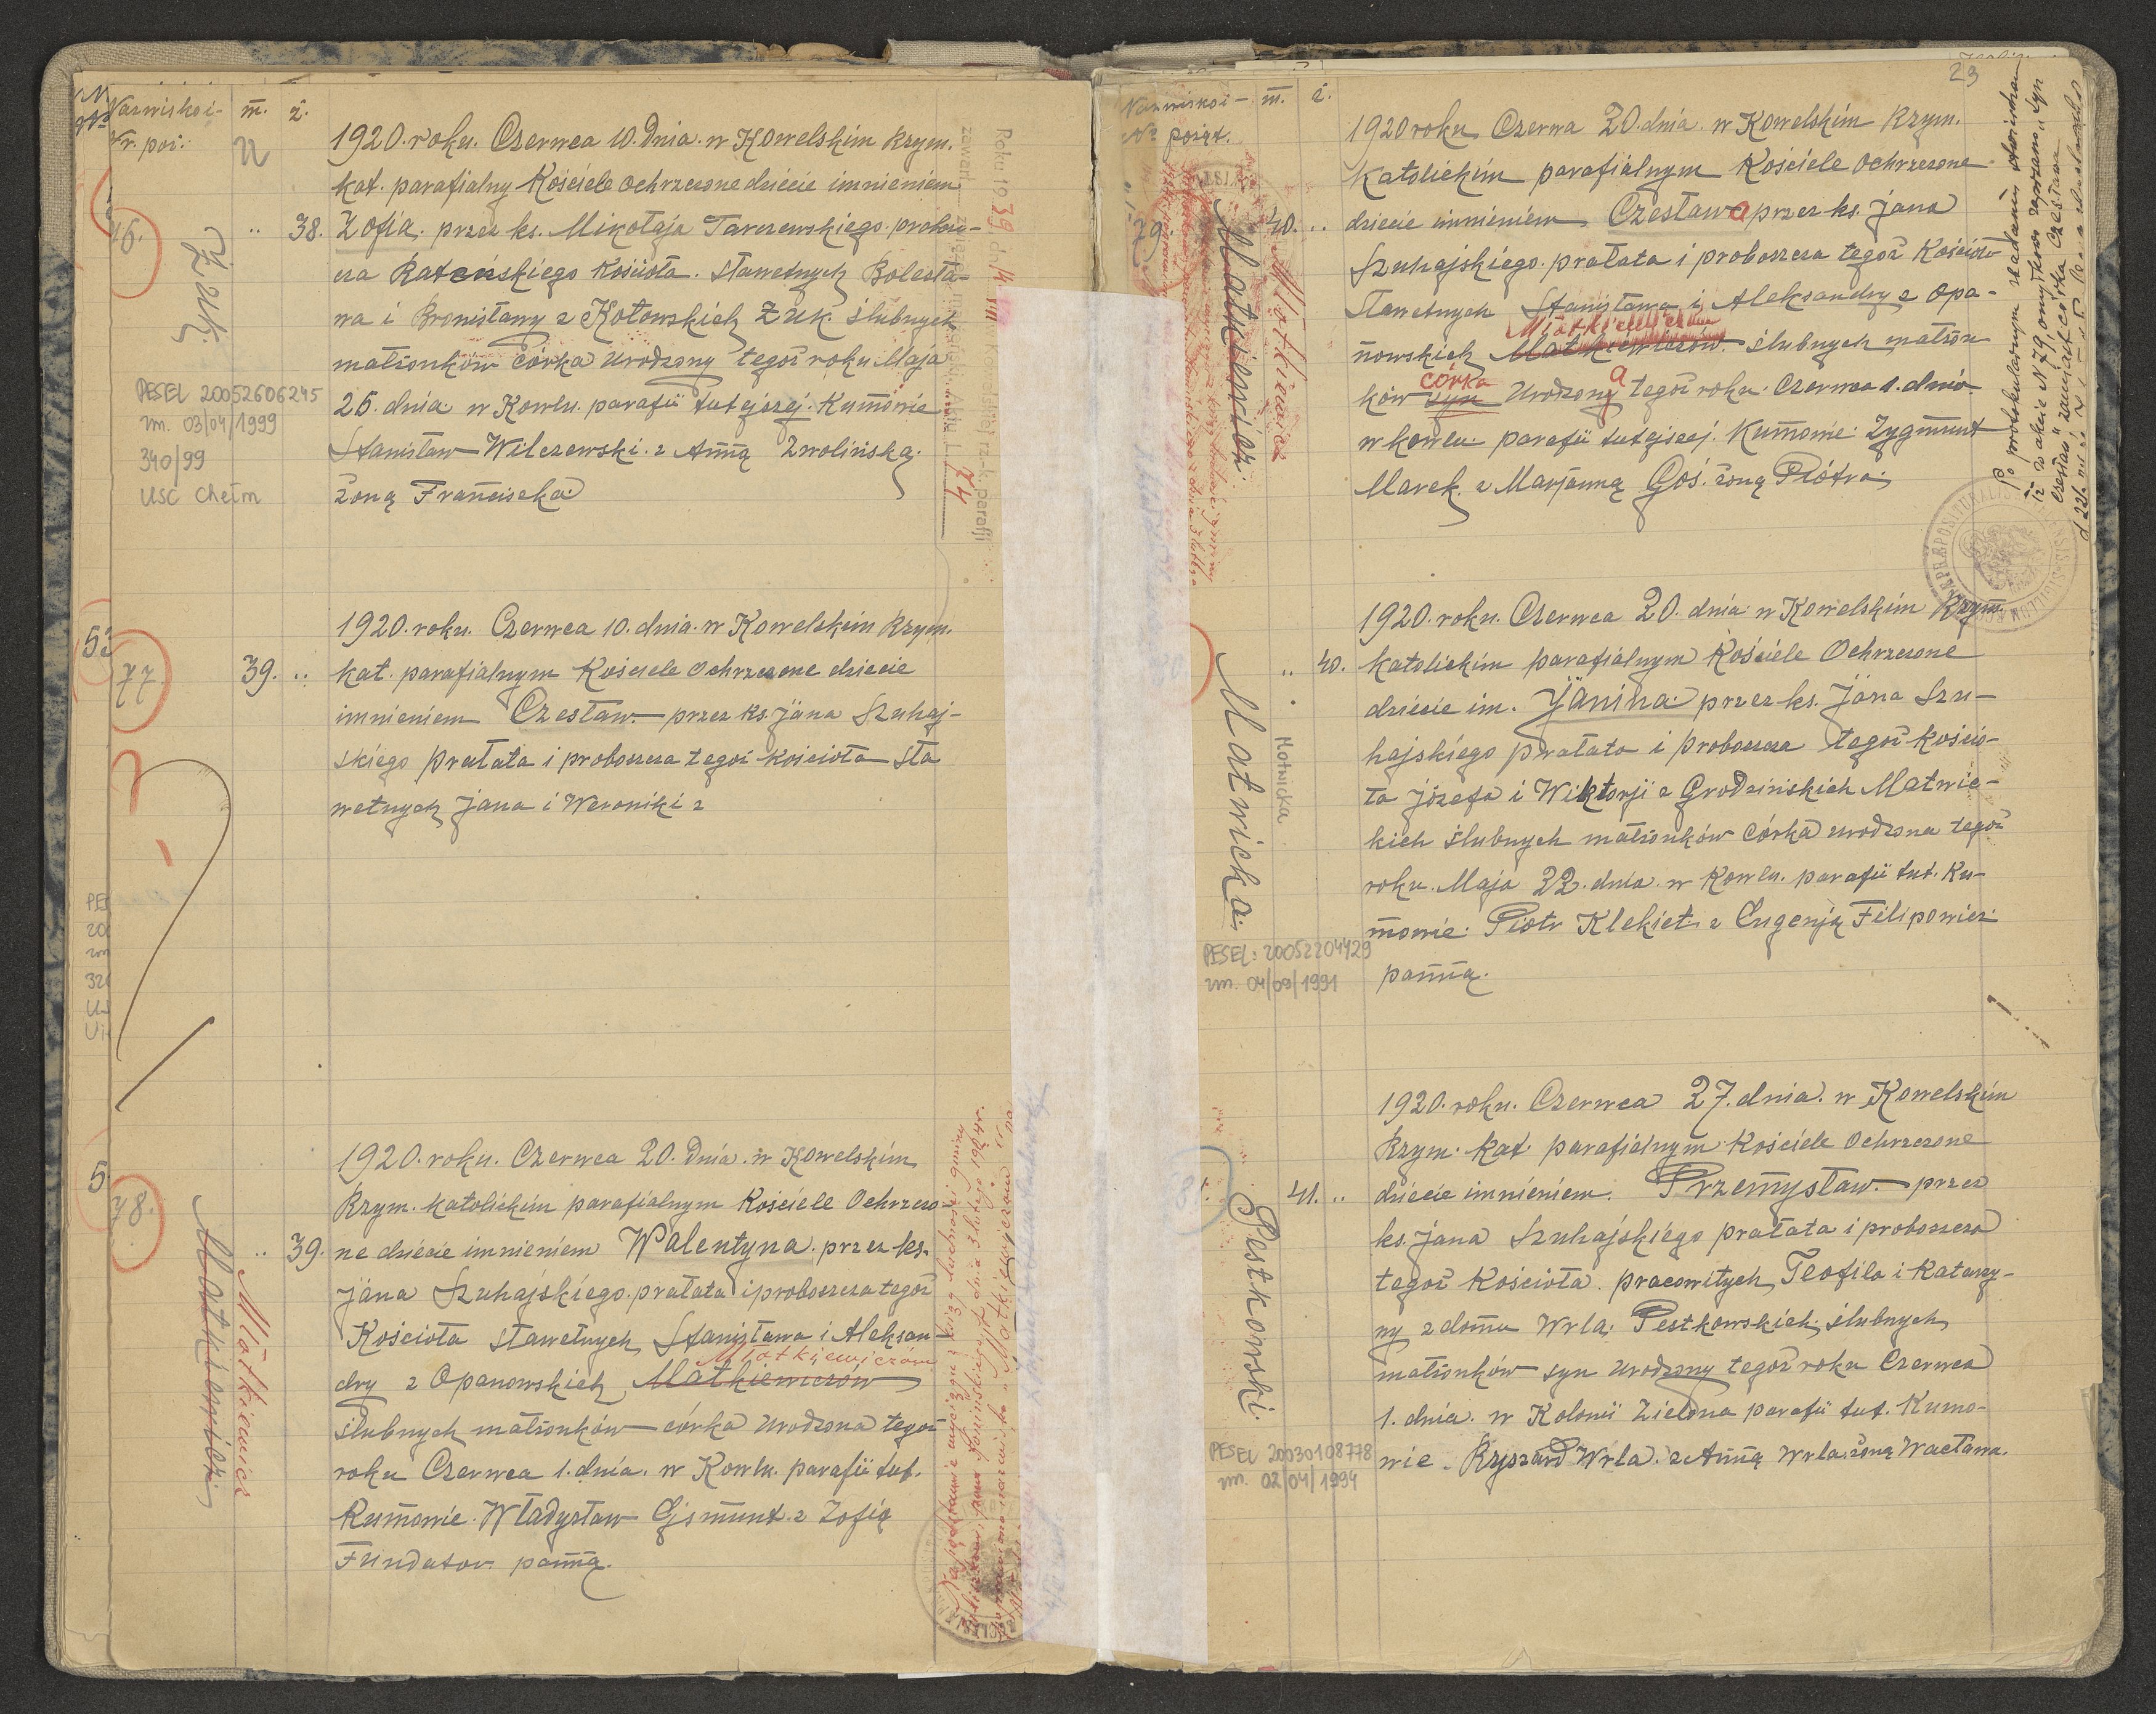 Nazwisko i m. ż.
Nr. poż.
1920. roku. Czerwca 10. Dnia. w Kowelskim Rzym.
kat. parafialny Kościele ochrzczone dziecie imnieniem
76. Żuk. .. 38. Zofia. przez ks. Mikołaja Tarczewskiego. probosz-
cza Rateńskiego Kościoła. Sławetnych Bolesła-
wa i Bronisławy z Kotowskich Żuk. ślubnych
małżonków córka urodzony tegoż roku Maja
26. dnia. w Kowlu. parafii tutejszej. Kumowie
Stanisław Wilczewski. z Anną Zwolińską.
żoną Franciszka.
PESEL 20052606245
zm. 03/04/1999
340/99
USC Chełm
1920. roku. Czerwca 10. dnia. w Kowelskim Rzym.
77 39. .. kat. parafialnym Kościele Ochrzczone dziecie
imnieniem Czesław. przez ks. Jana Szuhaj-
skiego prałata i proboszcza tegoż kościoła Sła
wetnych Jana i Weroniki z
1920. roku. Czerwca 20. Dnia. w Kowelskim
Rzym. katolickim parafialnym Kościele Ochrzczo-
78. Matkiewicz. Młotkiewicz .. 39. ne dziecie imnieniem Walentyna. przez ks.
Jana Szuhajskiego. prałata i proboszcza tegoż
Kościoła Sławetnych Stanisława i Aleksan
Młotkiewiczów
dry z Opanowskich Matkiewiczów
ślubnych małżonków córka urodzona tegoż
roku Czerwca 1. dnia. w Kowlu. parafii tut.
Kumowie. Władysław Gismunt. z Zofią
Fundator. panną.
23
Nazwisko i m. ż.
Nr. porząt.
1920 roku Czerwa 20. dnia. w Kowelskim Rzym.
Katolickim parafialnym Kościele Ochrzczone
79. Matkiewicz. Młotkiewicz 40. .. dziecie imnieniem Czesława przez ks. Jana
Szuhajskiego. prałata i proboszcza tegoż Kościoła
Sławetnych Stanisława i Aleksandry z Opa-
Młotkiewiczów
nowskich Matkiewiczów. ślubnych małżon
córka a
ków syn Urodzony tegoż roku. Czerwca 1. dnia.
w Kowlu. parafii tutejszej. Kumowie. Zygmunt
Marek. z Marjanną Goś. żoną Piotra.
1920. roku. Czerwca 20. dnia. w Kowelskim Rzym.
.. 40. katolickim parafialnym Kościele Ochrzczone
Matwicka. Motwicka
dziecie im. Janina. przez ks. Jana Szu-
hajskiego prałata i proboszcza tegoż kościo-
ła Józefa i Wiktorji z Grodzińskich Matwic-
kich ślubnych małżonków córka urodzona tegoż
roku. Maja 22. dnia. w Kowlu. parafii tut. Ku-
mowie: Piotr Klekiet. z Eugenją Filipowicz.
panną.
PESEL: 20052204429
zm. 04/09/1991
1920. roku. Czerwca 27. dnia. w Kowelskim
Rzym. kat. parafialnym Kościele Ochrzczone
Pestkowski. 41. .. dziecie imnieniem. Przemysław. przez
ks. Jana Szuhajskiego prałata i proboszcza
tegoż Kościoła. pracowitych Teofila i Katarzy-
ny z domu Wrla. Pestkowskich ślubnych
małżonków syn urodzony tegoż roku Czerwca
1. dnia. w Kolonii Zielona parafii tut. Kumo-
wie. Ryszard Wrla. z Anną Wrla. żoną Wacława.
PESEL 20030108778
zm. 02/04/1994